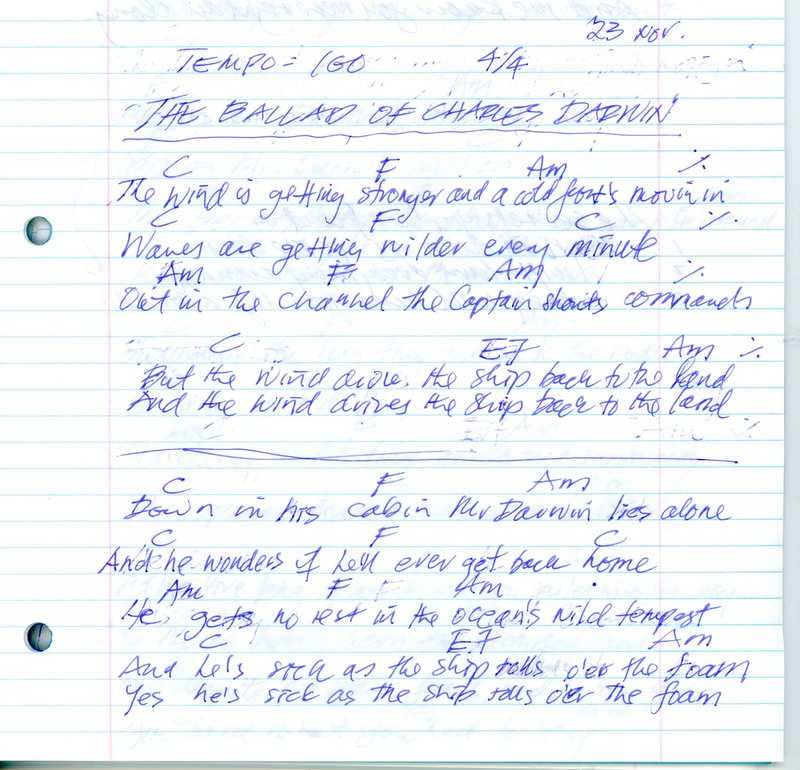 23 Nov.
TEMPO = 160 4/4
THE BALLAD OF CHARLES DARWIN
C F Am ٪
The wind is getting stronger and a cold front's movin in
C F C ٪
Waves are getting wilder every minute
Am F Am ٪
Out in the channel the Captain shouts commands
C E7 Am ٪
But the wind drives the ship back to the land
And the wind drives the ship back to the land
C F Am
Down in his cabin Mr Darwin lies alone
C F C
And he wonders if he'll ever get back home
Am F Am
He gets no rest in the ocean's wild tempest
C E7 Am
And he's sick as the ship rolls o'er the foam
Yes he's sick as the ship rolls o'er the foam